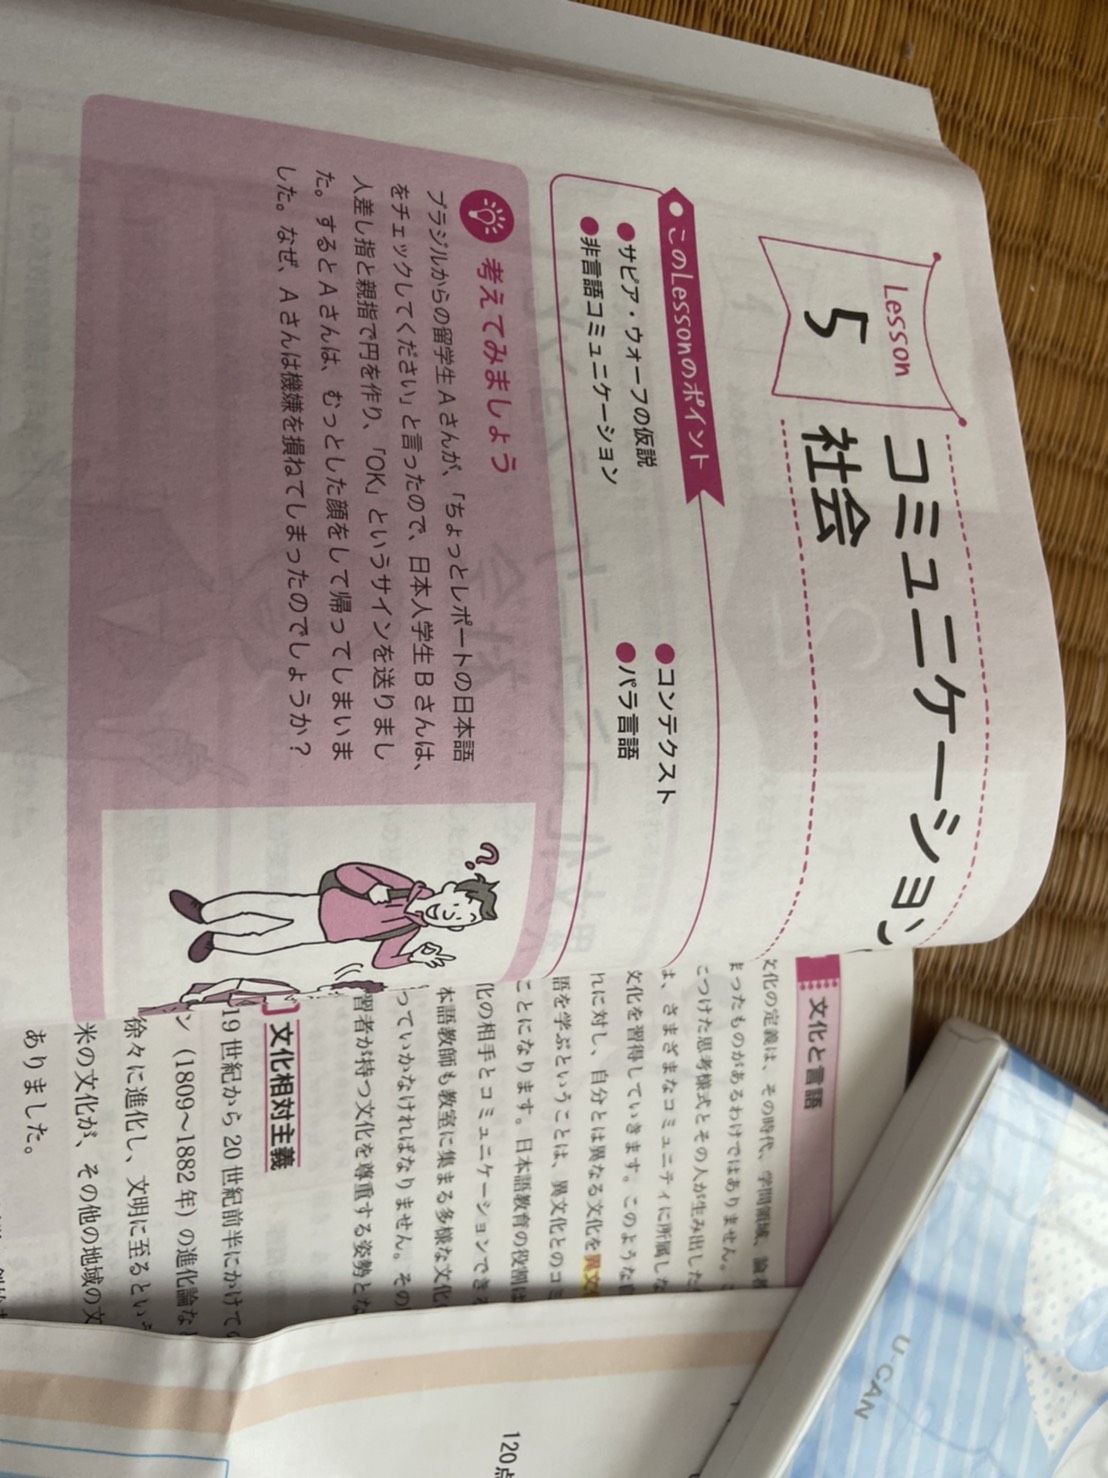 Lesson
5
コミュニケーション
社会
このLessonのポイント
●サピア・ウォーフの仮説
●非言語コミュニケーション
●コンテクスト
●パラ言語
考えてみましょう
ブラジルからの留学生Aさんが、「ちょっとレポートの日本語
をチェックしてください」と言ったので、日本人学生Bさんは、
人差し指と親指で円を作り、「OK」というサインを送りまし
た。するとAさんは、むっとした顔をして帰ってしまいま
した。なぜ、Aさんは機嫌を損ねてしまったのでしょうか？
?
文化と言語
文化の定義は、その時代、学問領域、論者
まったものがあるわけではありません。
こつけた思考様式とその人が生み出した
は、さまざまなコミュニティに所属しな
文化を習得していきます。このような
れに対し、自分とは異なる文化を異文
語を学ぶということは、異文化とのコミ
ことになります。日本語教育の役割は
化の相手とコミュニケーションできる
本語教師も教室に集まる多様な文化
っていかなければなりません。その
習者が持つ文化を尊重する姿勢とな
文化相対主義
19世紀から20世紀前半にかけて
ン（1809～1882年）の進化論な
徐々に進化し、文明に至るという
米の文化が、その他の地域の文
ありました。
120点
U-CAN